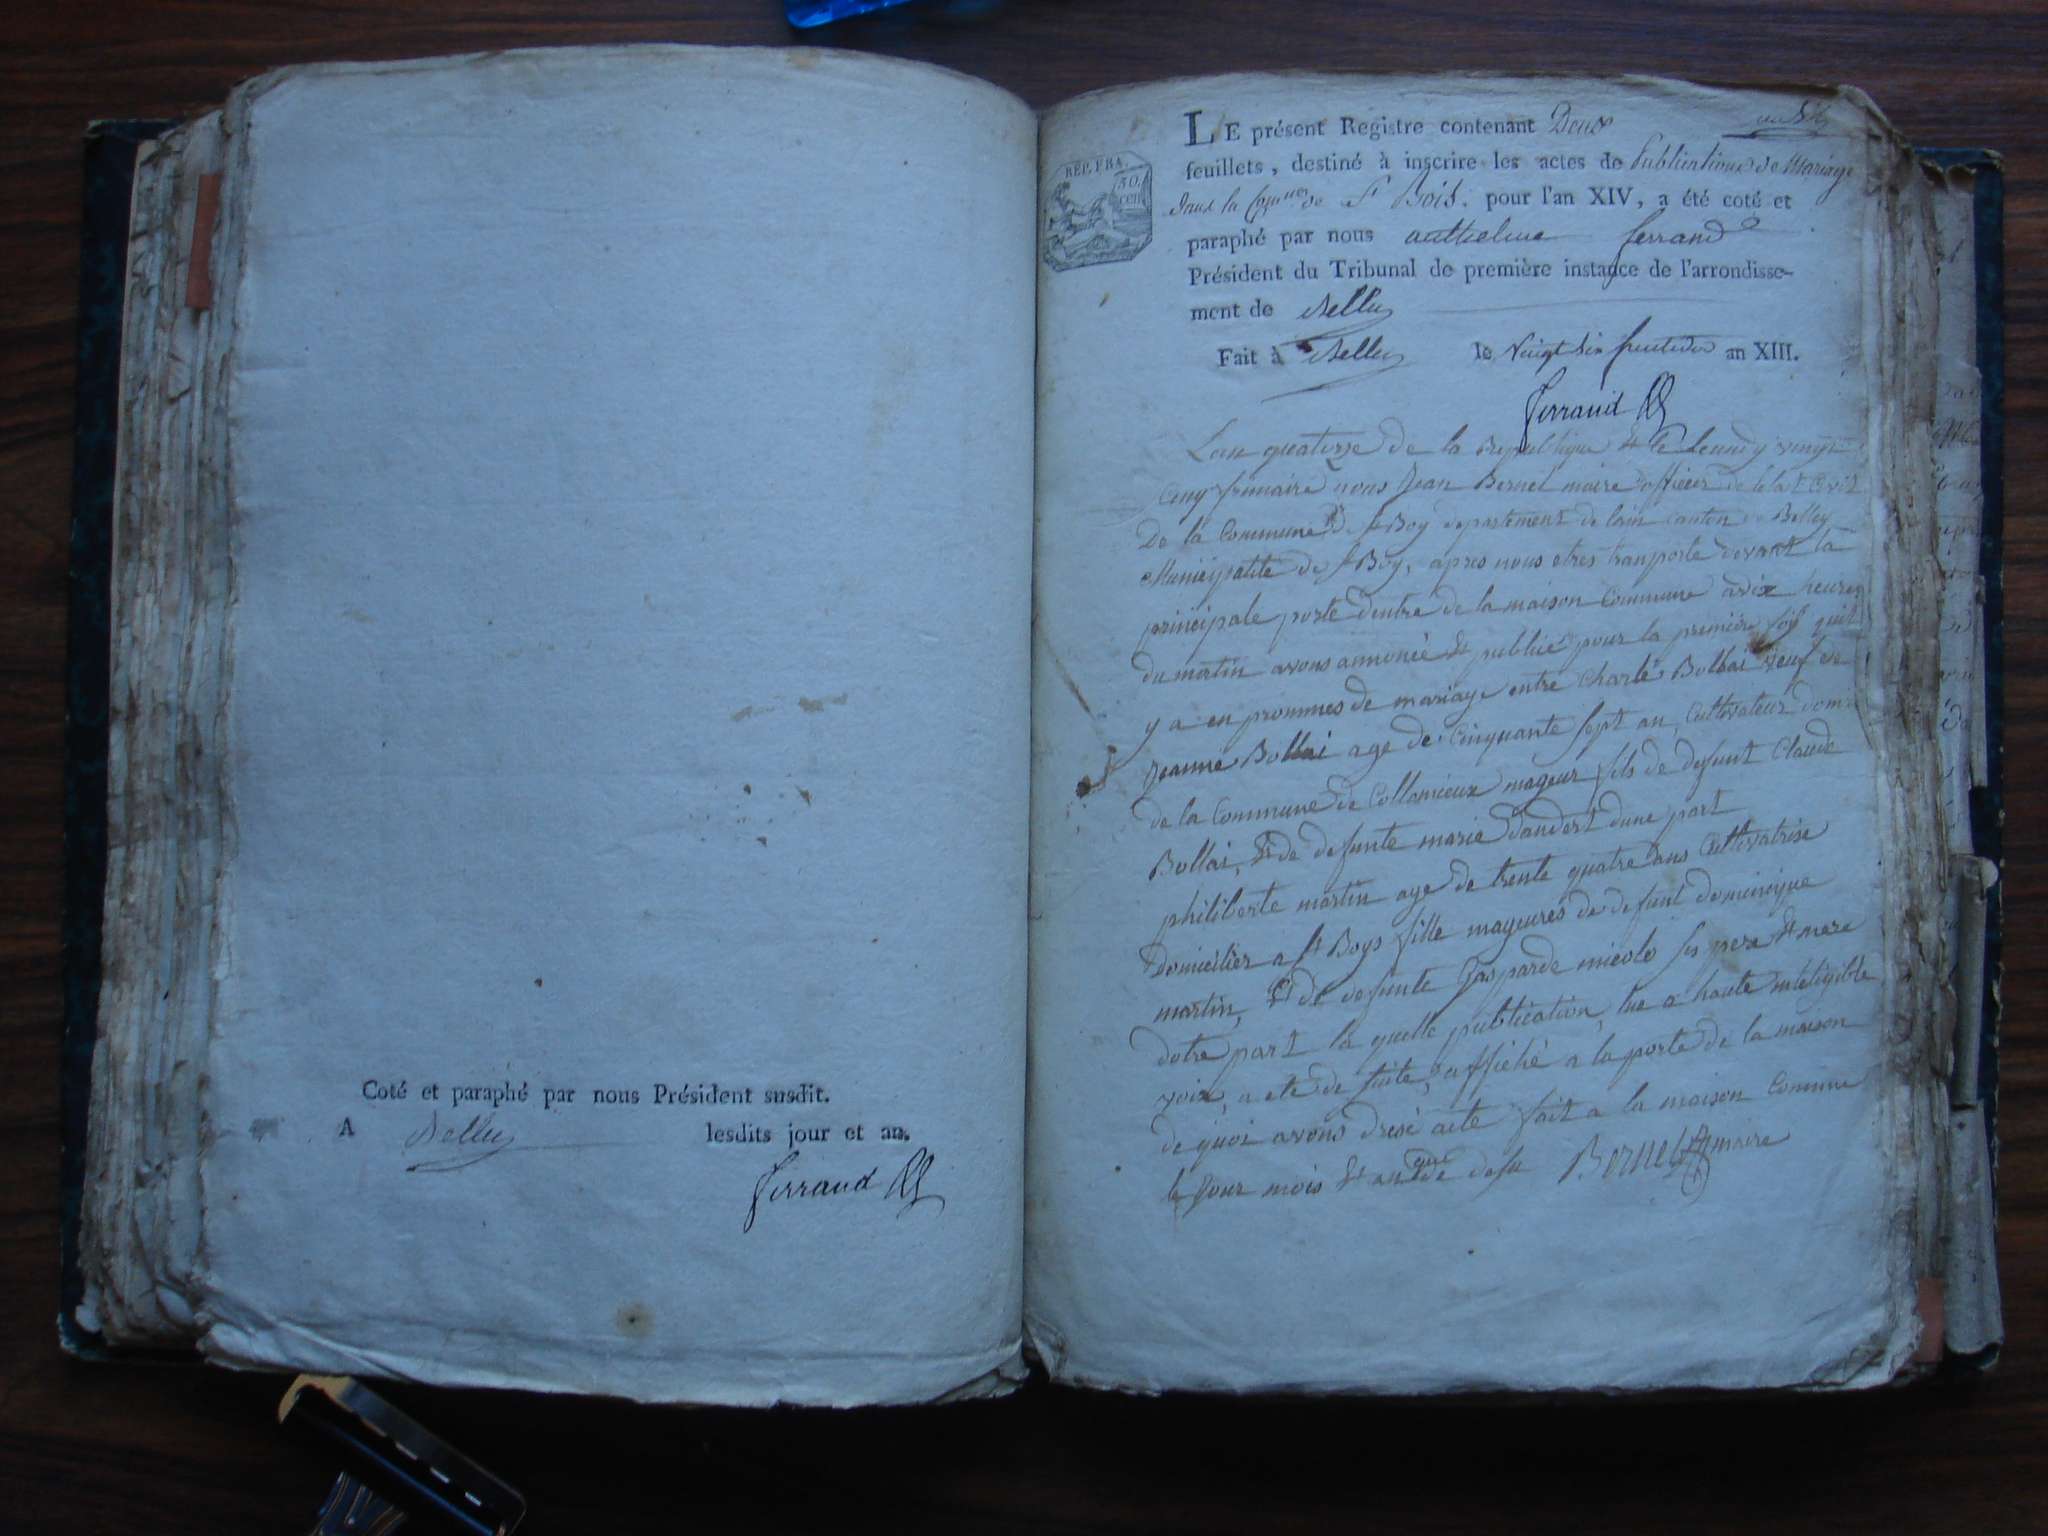 Coté et paraphé par nous Président susdit.
A Belley lesdits jour et an.
Ferrand
REP. FRA.
50.
cen
LE présent Registre contenant Deux
feuillets, destiné à inscrire les actes de Publications de Mariage
dans la Commune de St Bois. pour l'an XIV, a été coté et
paraphé par nous anthelme ferrand
Président du Tribunal de première instance de l'arrondisse-
ment de Belley
Fait à Belley le Vingt Six fructidor an XIII.
Ferrand
Lan quatorze de la Republique & le Leundy vingt
Cinq frimaire nous Jean Bernel maire officier de letat Civil
De la Commune de st Boy departement de lain Canton Belley
Municipalité de st Boy, apres nous etres tranporte devant la
principale porte dentre de la maison Commune a dix heures
du martin avons annoncé & publié pour la premiere foij quil
y a en prommes de mariage entre Charle Bollai veuf de
Jeanne Bollai age de Cinquante sept an, Cultivateur domi
de la Commune de Collomieux mageur fils de defunt Claude
Bollai, & de defunte marie dandert dune part
philiberte martin age de trente quatre ans Cultivatrise
domicilier a st Boys fille mageures de defunt dominique
martin, & de defunte Gasparde micolo ses pere & mere
dotre part la quelle publication, lue a haute inteligible
voix, a ete de suite, affiché a la porte de la maison
de quoi avons dresé acte fait a la maison Comune
le Jour mois & an que de Bernel maire